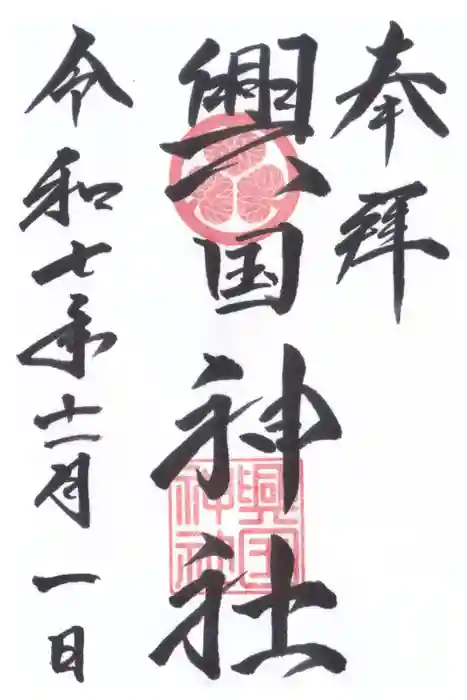 奉拝
興国神社
令和七年十一月一日
興国神社